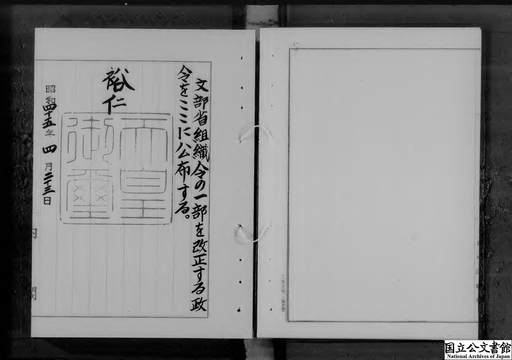 文部省組織令の一部を改正する政
令をここに公布する。
裕仁
天皇
御璽
昭和四十五年四月二十三日
内閣
国立公文書館
National Archives of Japan